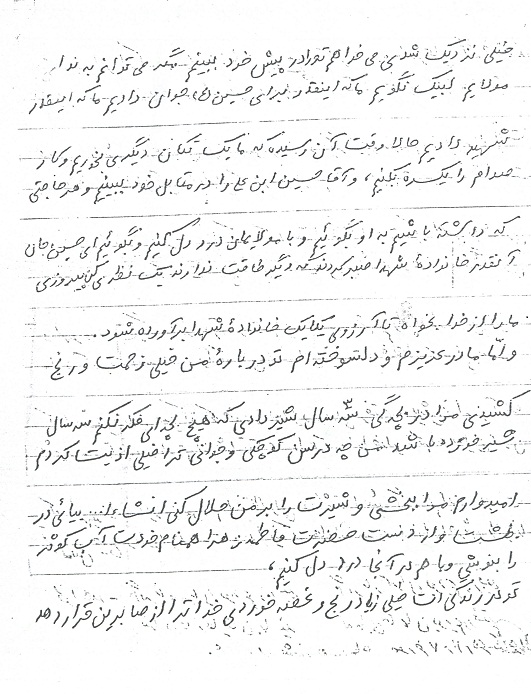 خیلی نزدیک شدیم می خواهم تو را در پیش خود ببینم مگر می توانم به ندا
مولایم لبیک نگویم ما که اینقدر برای حسین (ع) جوان دادیم ما که اینقدر
شهید دادیم حالا وقت آن رسیده که ما یک تکان دیگری بخوریم و کار
صدام را یکسره بکنیم، و آقا حسین ابن علی را در مقابل خود ببینیم و هر حاجتی
که داشته باشیم به او بگوئیم و با مولایمان درد دل کنیم و بگوئیم ای حسین جان
آنقدر خانوادۀ شهدا صبر کردند که دیگر طاقت ندارند یک نظری کن پیروزی
ما را از خدا بخواه تا آرزوی یکایک خانوادۀ شهدا برآورده شود.
و اما مادر عزیزم و دلسوخته ام تو دربارۀ من خیلی زحمت و رنج
کشیدی مرا در بچگی سه سال شیر دادی که هیچ بچه ای فکر نکنم سه سال
شیر خورده باشد من چه در سن کوچکی و جوانی ترا خیلی اذیت کردم
امیدوارم مرا ببخشی و شیرت را بر من حلال کنی انشاءا... بیائی در
بهشت و از دست حضرت فاطمه زهرا همنام خودت آب کوثر
را بنوشی و با هم در آنجا درد دل کنیم،
تو در زندگی ات خیلی زیاد رنج و غصه خوردی خدا ترا از صابرین قرار دهد